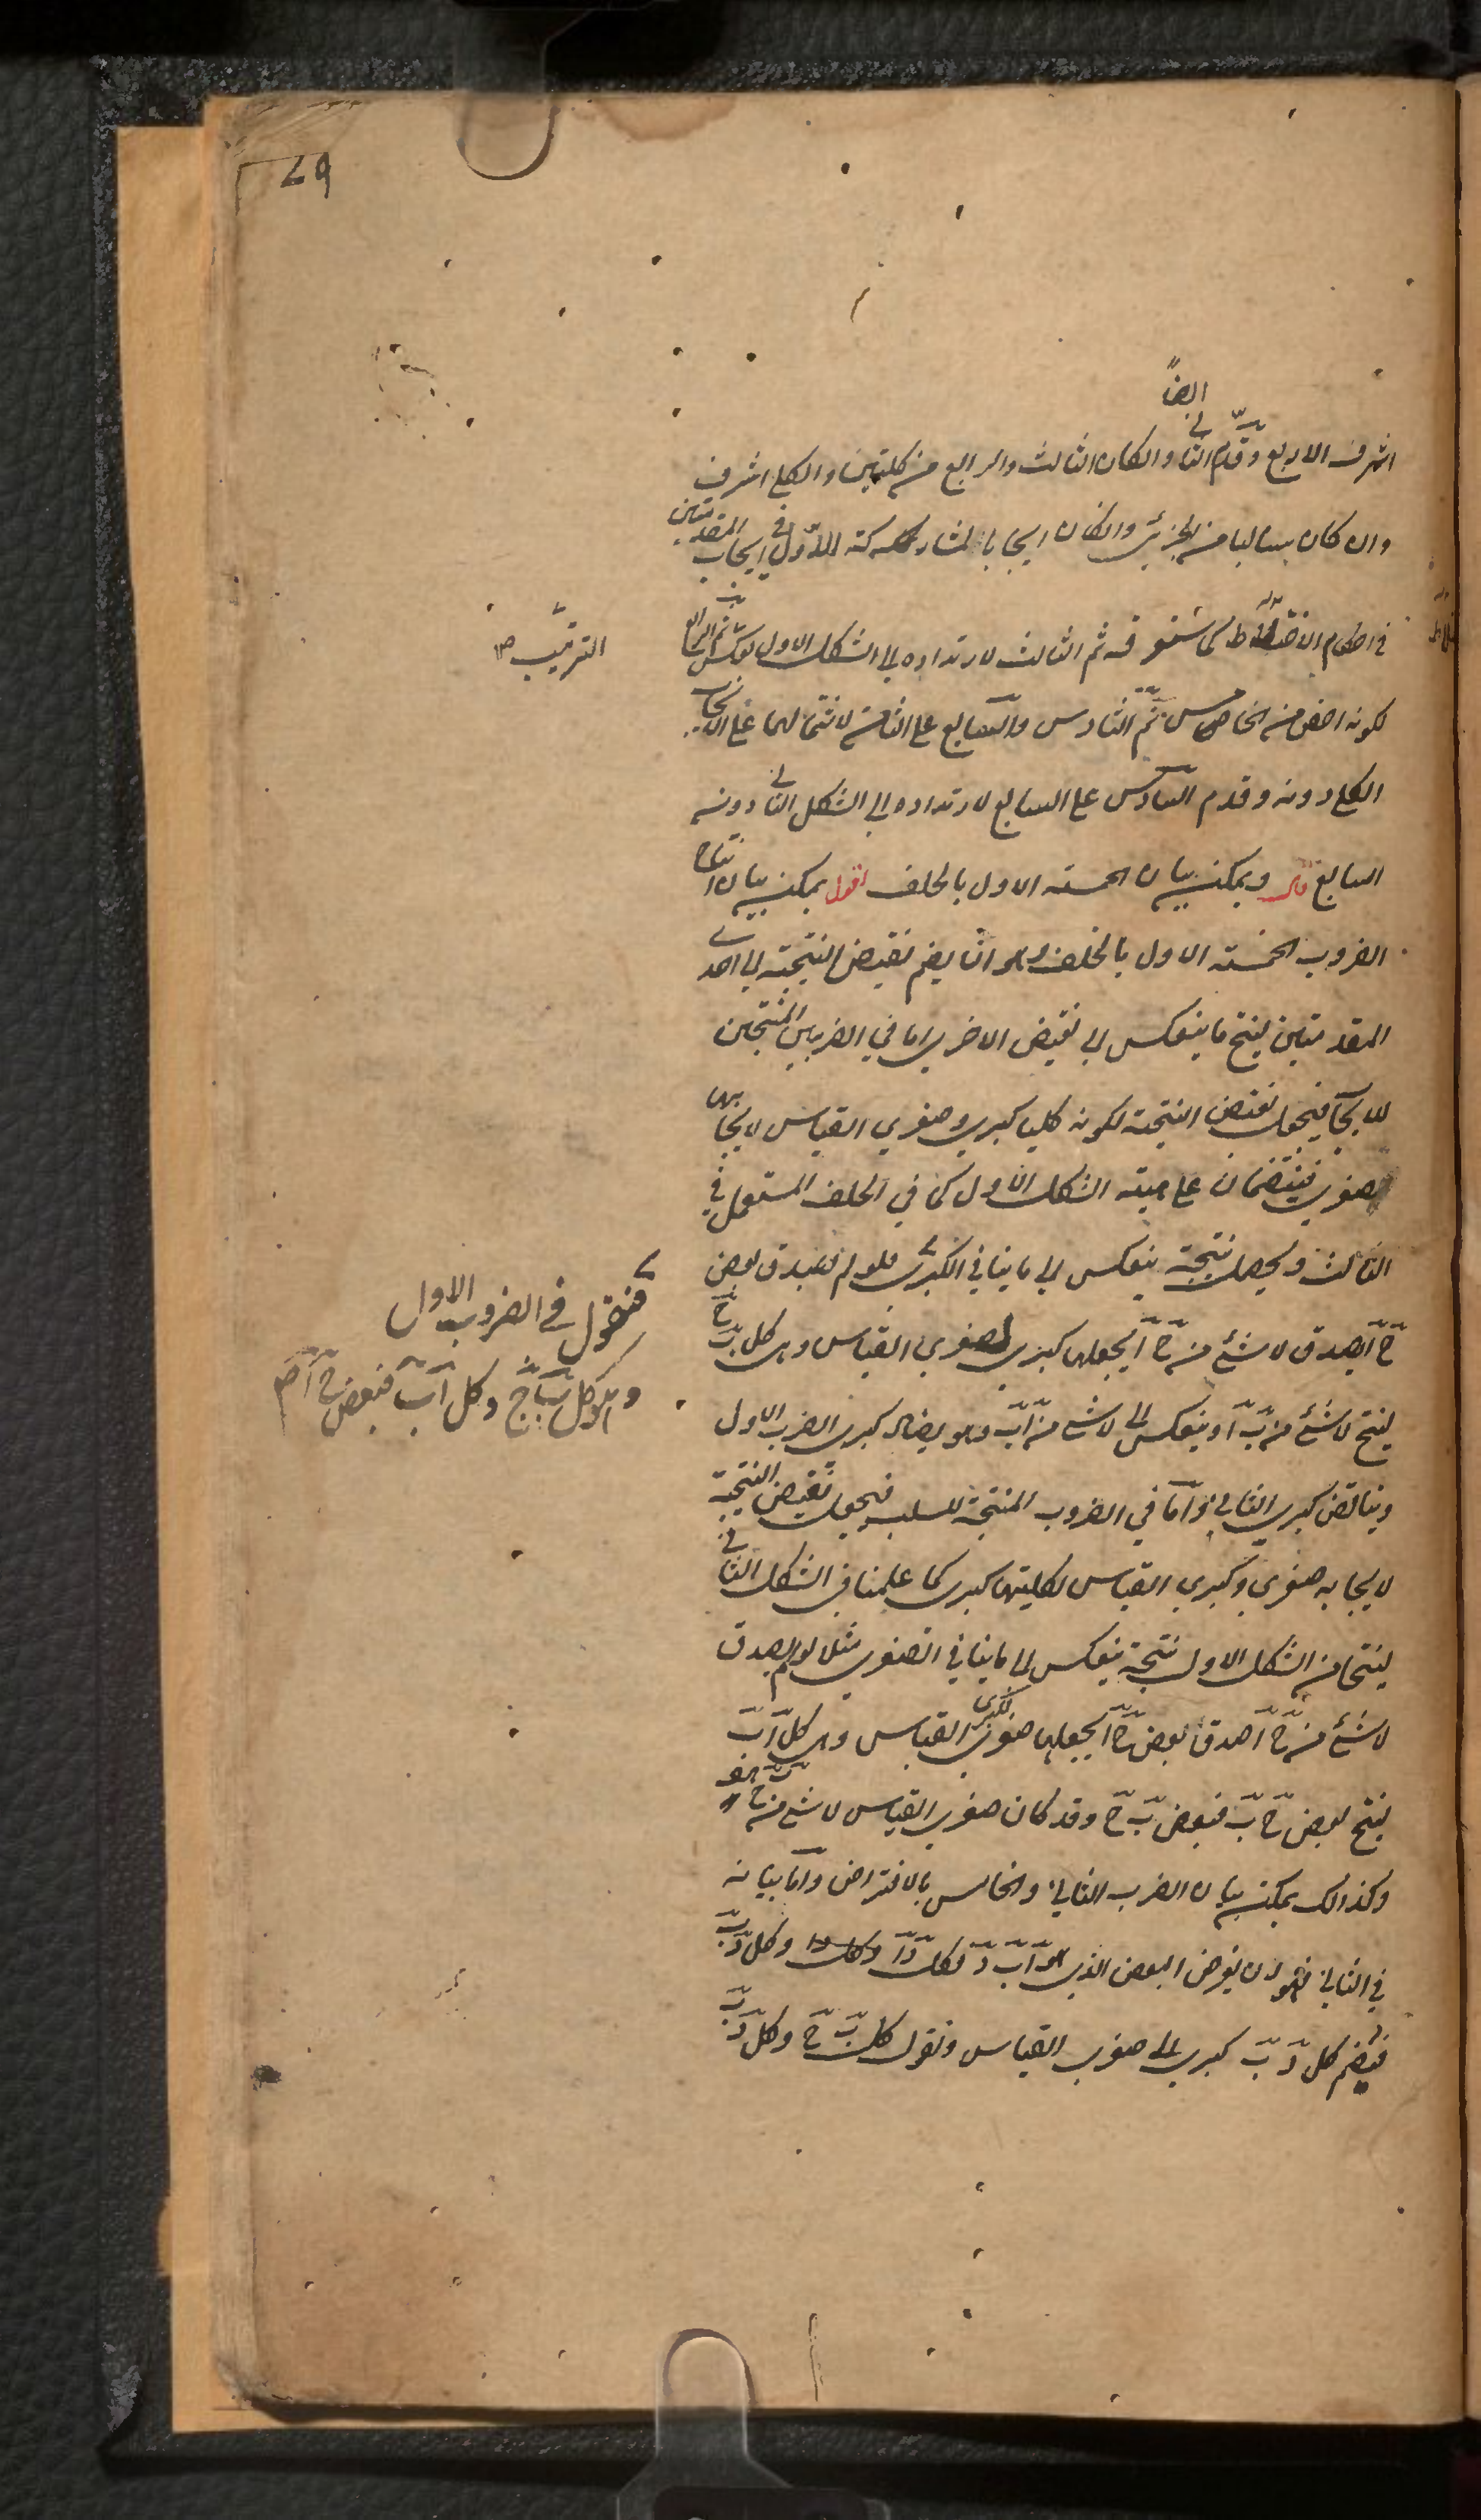 ايضاً
اشرف الاربع وقدّم الثاني والكان الثالث والرابع من كليتين والكلي اشرف
وان كان سالبا من الجزئي والكان ايجابا لمشاركته للاول في ايجاب المقدمتين
في احكام الاختلاط كما ستعرفه ثم الثالث لارتداده الى الشكل الاول بعكس الترتيب ثم الرابع
لكونه اخص من الخامس ثم السادس والسابع على الثامن لاشتمالهما على الايجاب
الكلي دونه وقدم السادس على السابع لارتداده الى الشكل الثاني دونه
السابع قال ويمكن بيان الخمسة الاول بالخلف اقول يمكن بيان انتاج
الضروب الخمسة الاول بالخلف وهو ان يضم نقيض النتيجة الى احدى
المقدمتين لينتج ما ينعكس الى نقيض الاخرى اما في الضربين المنتجين
للايجاب فيجعل نقيض النتيجة لكونه كليا كبرى وصغرى القياس لايجابها
صغرى فينتظمان على هيئة الشكل الاول كما في الخلف المستعمل في
الثالث ويحصل نتيجة ينعكس الى ما ينافي الكبرى فلو لم يصدق بعض
ج آ يصدق لا شئ من ج آ يجعلها كبرى لصغرى القياس وهي كل ب ج
ينتج لا شئ من ب آ وينعكس الى لا شئ من آ ب وهو يضاد كبرى الضرب الاول
ويناقض كبرى الثاني واما في الضروب المنتجة للسلب فيجعل نقيض النتيجة
لايجابه صغرى وكبرى القياس لكليتها كبرى كما علمنا في الشكل الثاني
لينتجا من الشكل الاول نتيجة ينعكس الى ما ينافي الصغرى مثلا لو لم يصدق
لا شئ من ج آ صدق بعض ج آ يجعلها صغرى لكبرى القياس وهي كل آ ب
ينتج بعض ج ب فبعض ب ج وقد كان صغرى القياس لا شئ من ب ج هف
وكذلك يمكن بيان الضرب الثاني والخامس بالافتراض واما بيانه
في الثاني فهو ان يفرض البعض الذي هو آ ب د فكل د آ وكل د ب
فيضم كل د ب كبرى الى صغرى القياس ونقول كل ب ج وكل د ب
الترتيب صح
فنقول في الضروب الاول
وهو كل ب ج وكل آ ب فبعض ج آ صح